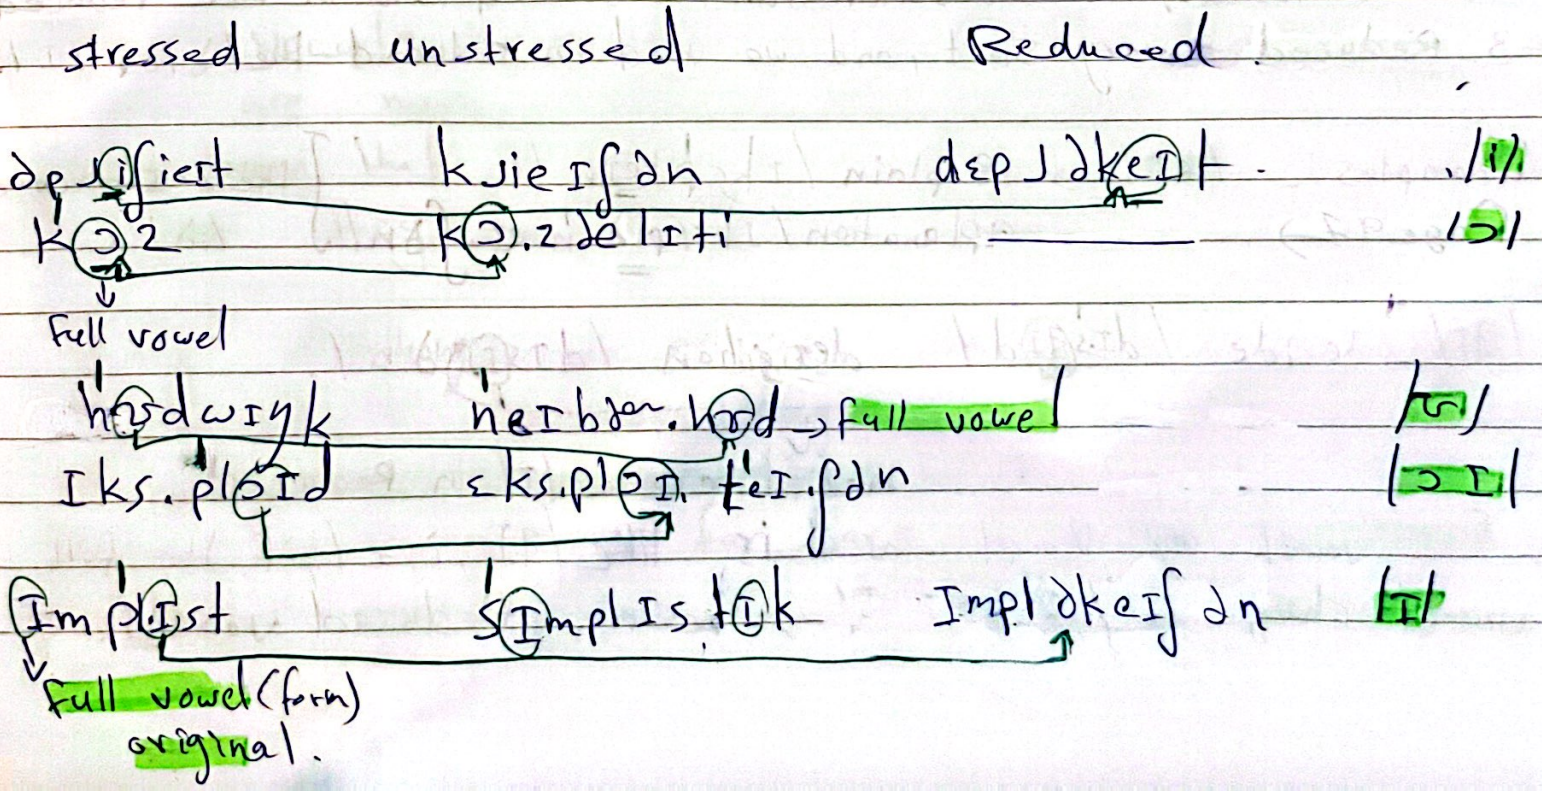 stressed unstressed Reduced.
əpɹiʃieɪt kɹieɪʃən dɛpɹəkeɪt. /i/
kɔz kɔ.zəlɪti ——— /ɔ/
full vowel
ˈhʊdwɪŋk ˈneɪbɚ.hʊd → full vowel /ʊ/
ɪks.ˈplɔɪd ɛks.plɔɪ.ˈteɪ.ʃən /ɔɪ/
ɪmˈplɪst ˈsɪmplɪstɪk ɪmpləkeɪʃən /ɪ/
full vowel (form)
original.